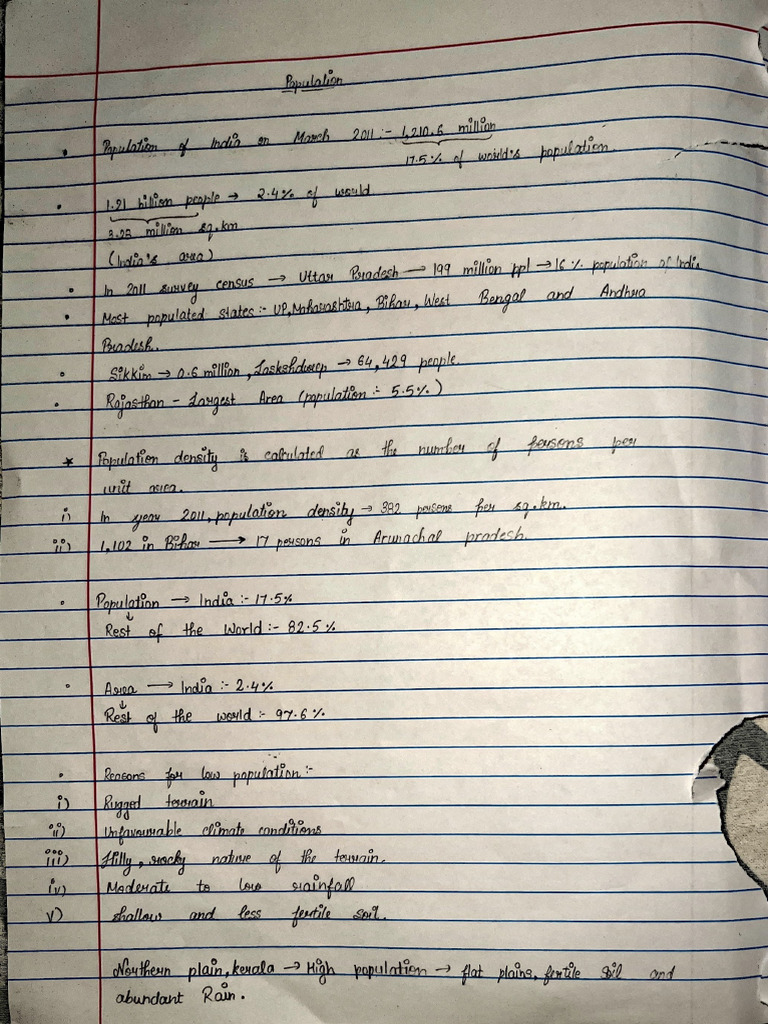 Population
• Population of India on March 2011 :- 1,210.6 million
17.5% of world's population.
• 1.21 billion people → 2.4% of world
3.28 million sq.km
(India's area)
• In 2011 survey census → Uttar Pradesh → 199 million ppl → 16% population of India
• Most populated states :- UP, Maharashtra, Bihar, West Bengal and Andhra
Pradesh.
• Sikkim → 0.6 million, Lakshdweep → 64,429 people.
• Rajasthan - Largest Area (population :- 5.5%)
* Population density is calculated as the number of persons per
unit area.
i) In year 2011, population density → 382 persons per sq.km.
ii) 1,102 in Bihar → 17 persons in Arunachal pradesh.
• Population → India :- 17.5%
↓
Rest of the World :- 82.5%
• Area → India :- 2.4%
↓
Rest of the world :- 97.6%
• Reasons for low population :-
i) Rugged terrain
ii) Unfavourable climate conditions
iii) Hilly, rocky nature of the terrain.
iv) Moderate to low rainfall
v) shallow and less fertile soil.
Northern plain, kerala → High population → flat plains, fertile Soil and
abundant Rain.